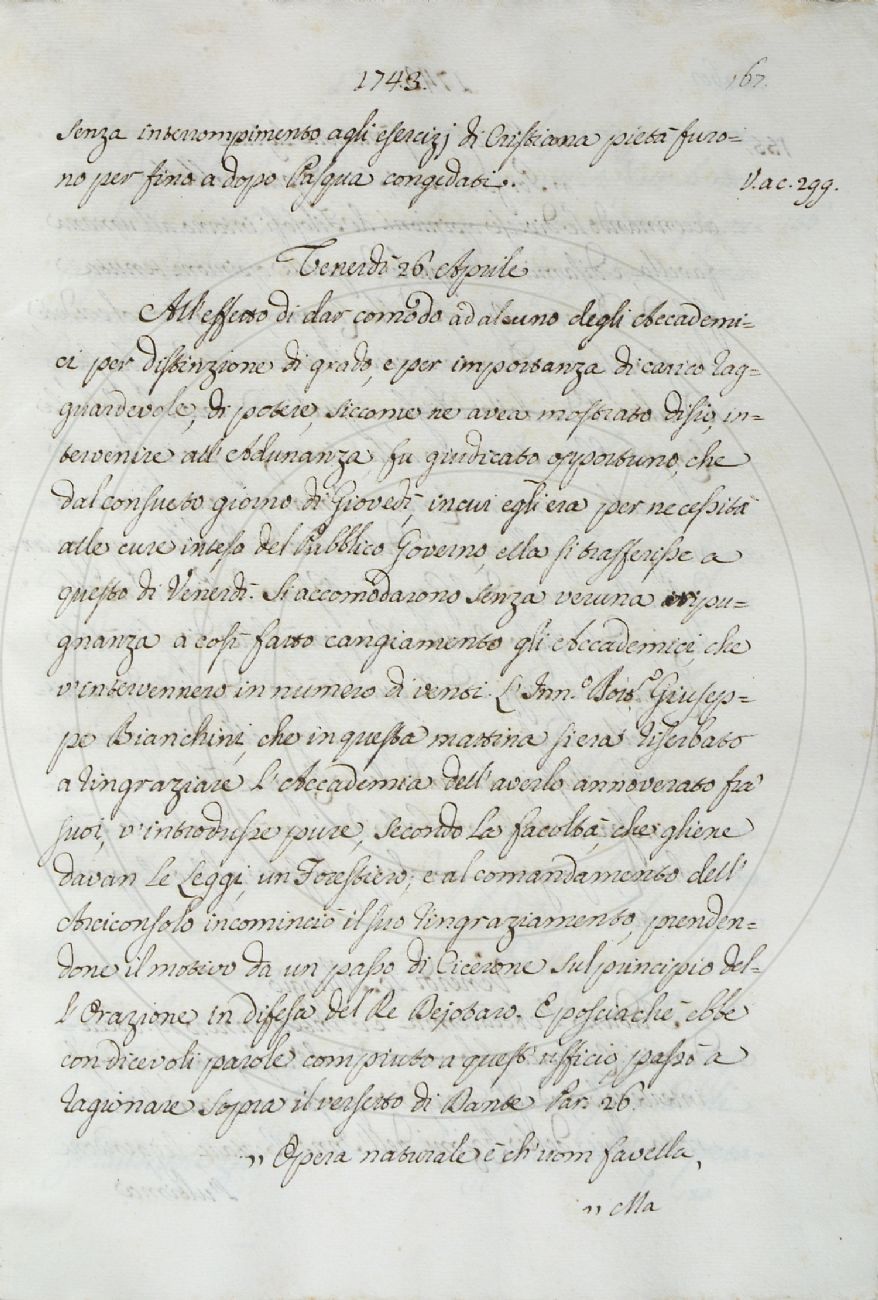 1743. 167.
senza interrompimento agli esercizj di Cristiana pietà furo=
no per fino a dopo Pasqua congedati. V. a c. 299.
Venerdì 26. Aprile
All'effetto di dar comodo ad alcuno degli Accademi=
ci per distinzione di grado, e per importanza di carico rag=
guardevole, di potere, siccome ne avea mostrato disio, in=
tervenire all'Adunanza fu giudicato opportuno, che
dal consueto giorno di Giovedì, in cui egli era per necessità
alle cure inteso del Pubblico Governo, ella si trasferisse a
questo di Venerdì. Si accomodarono senza veruna ripu=
gnanza a così fatto cangiamento gli Accademici, che
v'intervennero in numero di venti. L'Inn.º Dott.º Giusep=
pe Bianchini, che in questa mattina si era riserbato
a ringraziare l'Accademia dell'averlo annoverato fra'
suoi, v'introdusse pure, secondo la facoltà, che gliene
davan le Leggi, un Forestiero; e al comandamento dell'
Arciconsolo incominciò il suo ringraziamento, prenden=
done il motivo da un passo di Cicerone sul principio del=
l'Orazione in difesa del Re Dejotaro. E posciachè ebbe
con dicevoli parole compiuto a quest'ufficio, passò a
ragionare sopra il versetto di Dante Par. 26.
,, Opera naturale è ch'uom favella,
,, Ma